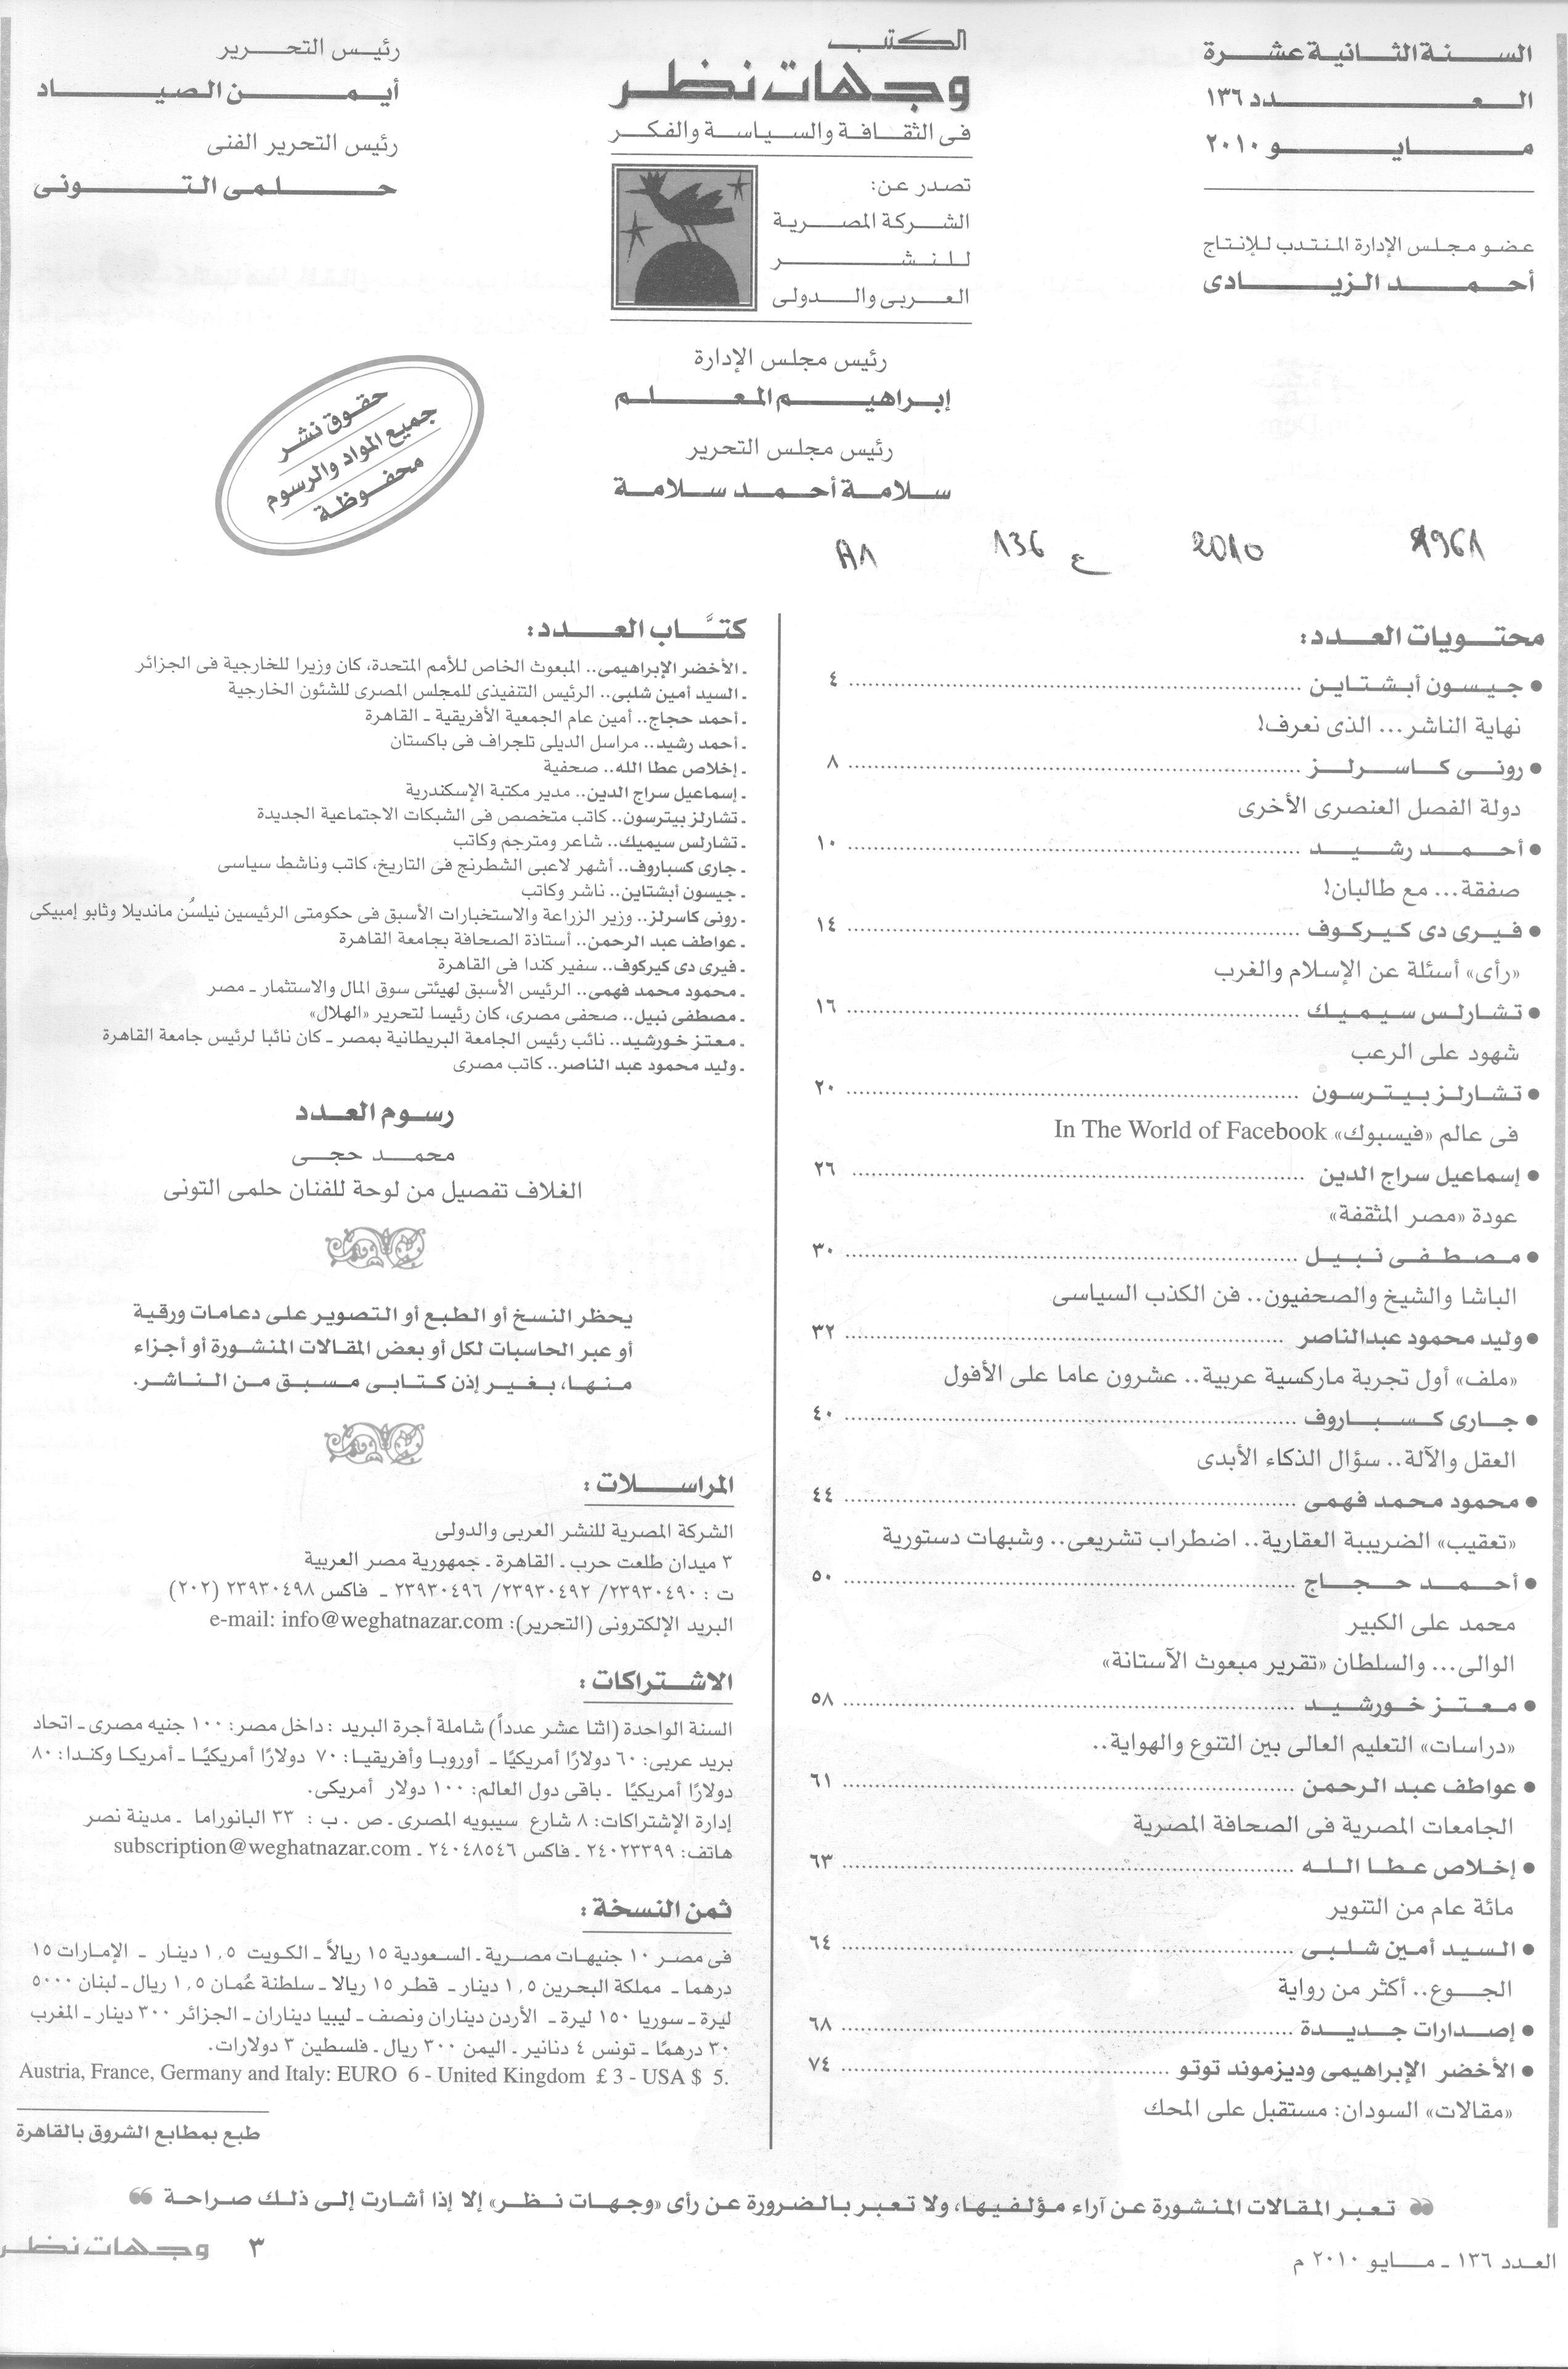 السنة الثانية عشرة
العدد ١٣٦
مايو ٢٠١٠
عضو مجلس الإدارة المنتدب للإنتاج
أحمد الزيادى
الكتب
وجهات نظر
فى الثقافة والسياسة والفكر
تصدر عن:
الشركة المصرية
للنشر
العربى والدولى
رئيس مجلس الإدارة
إبراهيم المعلم
رئيس مجلس التحرير
سلامة أحمد سلامة
رئيس التحرير
أيمن الصياد
رئيس التحرير الفنى
حلمى التونى
حقوق نشر
جميع المواد والرسوم
محفوظة
A1 136 ع 2010 1961
محتويات العدد:
● جيسون أبشتاين ........ ٤
نهاية الناشر... الذى نعرف!
● رونى كاسرلز ........ ٨
دولة الفصل العنصرى الأخرى
● أحمد رشيد ........ ١٠
صفقة... مع طالبان!
● فيرى دى كيركوف ........ ١٤
«رأى» أسئلة عن الإسلام والغرب
● تشارلس سيميك ........ ١٦
شهود على الرعب
● تشارلز بيترسون ........ ٢٠
فى عالم «فيسبوك» In The World of Facebook
● إسماعيل سراج الدين ........ ٢٦
عودة «مصر المثقفة»
● مصطفى نبيل ........ ٣٠
الباشا والشيخ والصحفيون.. فن الكذب السياسى
● وليد محمود عبدالناصر ........ ٣٢
«ملف» أول تجربة ماركسية عربية.. عشرون عاما على الأفول
● جارى كسباروف ........ ٤٠
العقل والآلة.. سؤال الذكاء الأبدى
● محمود محمد فهمى ........ ٤٤
«تعقيب» الضريبة العقارية.. اضطراب تشريعى.. وشبهات دستورية
● أحمد حجاج ........ ٥٠
محمد على الكبير
الوالى... والسلطان «تقرير مبعوث الآستانة»
● معتز خورشيد ........ ٥٨
«دراسات» التعليم العالى بين التنوع والهواية..
● عواطف عبد الرحمن ........ ٦١
الجامعات المصرية فى الصحافة المصرية
● إخلاص عطا الله ........ ٦٣
مائة عام من التنوير
● السيد أمين شلبى ........ ٦٤
الجوع.. أكثر من رواية
● إصدارات جديدة ........ ٦٨
● الأخضر الإبراهيمى وديزموند توتو ........ ٧٤
«مقالات» السودان: مستقبل على المحك
كتَّاب العدد:
ـ الأخضر الإبراهيمى.. المبعوث الخاص للأمم المتحدة، كان وزيرا للخارجية فى الجزائر
ـ السيد أمين شلبى.. الرئيس التنفيذى للمجلس المصرى للشئون الخارجية
ـ أحمد حجاج.. أمين عام الجمعية الأفريقية ـ القاهرة
ـ أحمد رشيد.. مراسل الديلى تلجراف فى باكستان
ـ إخلاص عطا الله.. صحفية
ـ إسماعيل سراج الدين.. مدير مكتبة الإسكندرية
ـ تشارلز بيترسون.. كاتب متخصص فى الشبكات الاجتماعية الجديدة
ـ تشارلس سيميك.. شاعر ومترجم وكاتب
ـ جارى كسباروف.. أشهر لاعبى الشطرنج فى التاريخ، كاتب وناشط سياسى
ـ جيسون أبشتاين.. ناشر وكاتب
ـ رونى كاسرلز.. وزير الزراعة والاستخبارات الأسبق فى حكومتى الرئيسين نيلسُن مانديلا وثابو إمبيكى
ـ عواطف عبد الرحمن.. أستاذة الصحافة بجامعة القاهرة
ـ فيرى دى كيركوف.. سفير كندا فى القاهرة
ـ محمود محمد فهمى.. الرئيس الأسبق لهيئتى سوق المال والاستثمار ـ مصر
ـ مصطفى نبيل.. صحفى مصرى، كان رئيسا لتحرير «الهلال»
ـ معتز خورشيد.. نائب رئيس الجامعة البريطانية بمصر ـ كان نائبا لرئيس جامعة القاهرة
ـ وليد محمود عبد الناصر.. كاتب مصرى
رسوم العدد
محمد حجى
الغلاف تفصيل من لوحة للفنان حلمى التونى
يحظر النسخ أو الطبع أو التصوير على دعامات ورقية
أو عبر الحاسبات لكل أو بعض المقالات المنشورة أو أجزاء
منها، بغير إذن كتابى مسبق من الناشر.
المراسلات:
الشركة المصرية للنشر العربى والدولى
٣ ميدان طلعت حرب ـ القاهرة ـ جمهورية مصر العربية
ت : ٢٣٩٣٠٤٩٠/ ٢٣٩٣٠٤٩٢/ ٢٣٩٣٠٤٩٦ ـ فاكس ٢٣٩٣٠٤٩٨ (٢٠٢)
البريد الإلكترونى (التحرير): e-mail: info@weghatnazar.com
الاشتراكات:
السنة الواحدة (اثنا عشر عدداً) شاملة أجرة البريد : داخل مصر: ١٠٠ جنيه مصرى ـ اتحاد
بريد عربى: ٦٠ دولارًا أمريكيًا ـ أوروبا وأفريقيا: ٧٠ دولارًا أمريكيًا ـ أمريكا وكندا: ٨٠
دولارًا أمريكيًا ـ باقى دول العالم: ١٠٠ دولار أمريكى.
إدارة الإشتراكات: ٨ شارع سيبويه المصرى ـ ص . ب : ٣٣ البانوراما ـ مدينة نصر
هاتف: ٢٤٠٢٣٣٩٩ ـ فاكس ٢٤٠٤٨٥٤٦ ـ subscription@weghatnazar.com
ثمن النسخة:
فى مصر ١٠ جنيهات مصرية ـ السعودية ١٥ ريالاً ـ الكويت ١,٥ دينار ـ الإمارات ١٥
درهما ـ مملكة البحرين ١,٥ دينار ـ قطر ١٥ ريالا ـ سلطنة عُمان ١,٥ ريال ـ لبنان ٥٠٠٠
ليرة ـ سوريا ١٥٠ ليرة ـ الأردن ديناران ونصف ـ ليبيا ديناران ـ الجزائر ٣٠٠ دينار ـ المغرب
٣٠ درهمًا ـ تونس ٤ دنانير ـ اليمن ٣٠٠ ريال ـ فلسطين ٣ دولارات.
Austria, France, Germany and Italy: EURO 6 - United Kingdom £ 3 - USA $ 5.
طبع بمطابع الشروق بالقاهرة
تعبر المقالات المنشورة عن آراء مؤلفيها، ولا تعبر بالضرورة عن رأى «وجهات نظر» إلا إذا أشارت إلى ذلك صراحة
العدد ١٣٦ ـ مايو ٢٠١٠ م
٣ وجهات نظر